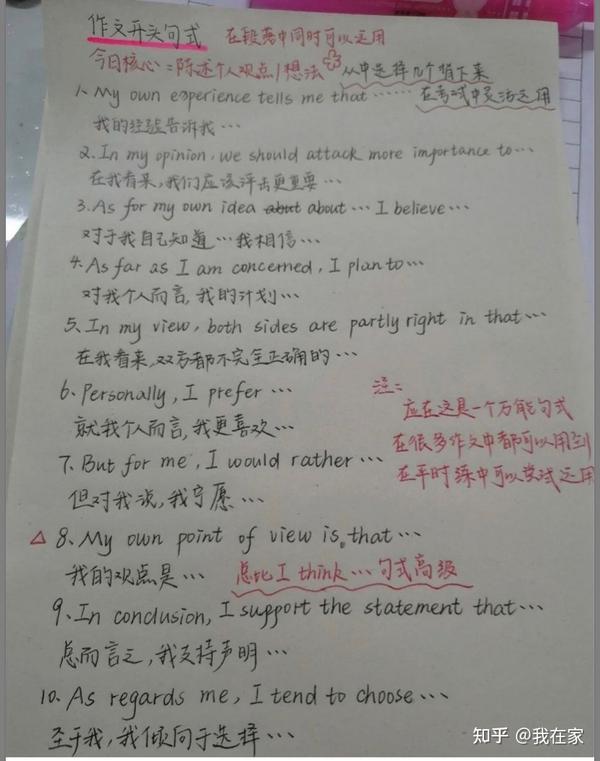 作文开头句式 在段落中同时可以运用
今日核心=陈述个人观点/想法 从中选择几个背下来
1. My own experience tells me that…… 在考试中灵活运用
我的经验告诉我…
2. In my opinion, we should attack more importance to…
在我看来,我们应该评击更重要…
3. As for my own idea about… I believe…
对于我自己知道…我相信…
4. As far as I am concerned, I plan to…
对我个人而言,我的计划…
5. In my view, both sides are partly right in that…
在我看来,双方都不完全正确的…
6. Personally, I prefer…
就我个人而言,我更喜欢…
注:
应在这是一个万能句式
在很多作文中都可以用到
在平时练中可以尝试运用
7. But for me, I would rather…
但对我说,我宁愿…
△ 8. My own point of view is that…
我的观点是… 总比I think…句式高级
9. In conclusion, I support the statement that…
总而言之,我支持声明…
10. As regards me, I tend to choose…
至于我,我倾向于选择…
知乎 @我在家